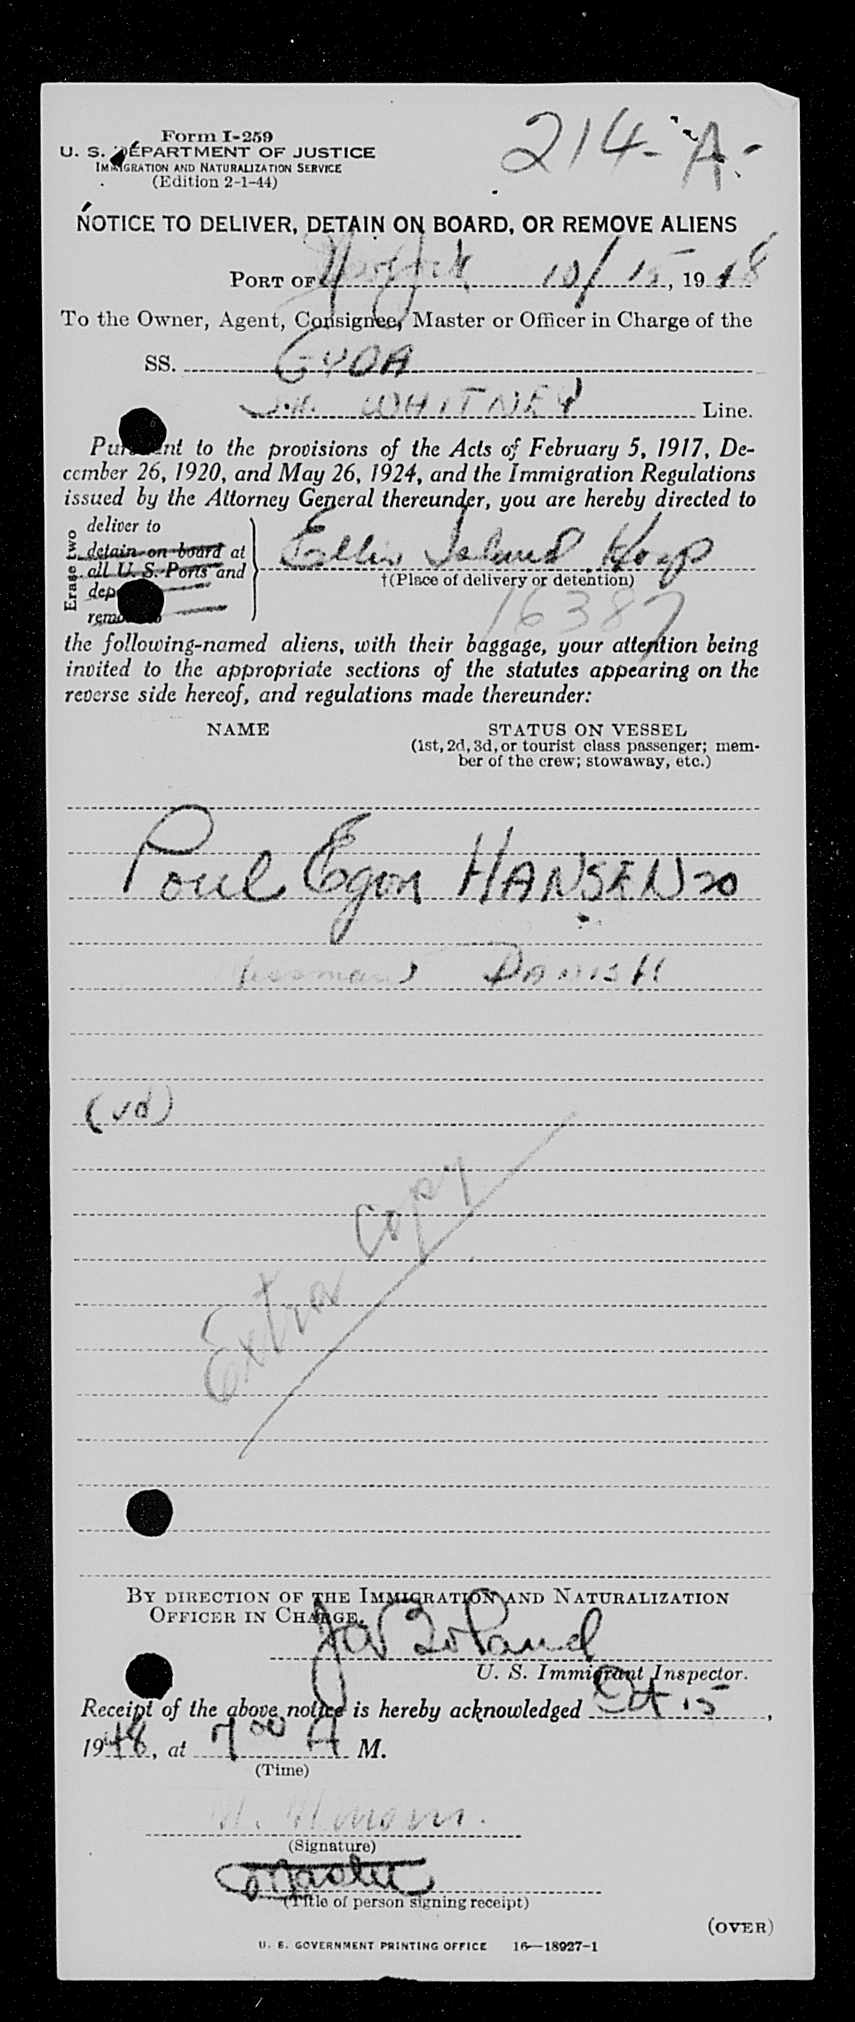 Form I-259
U. S. DEPARTMENT OF JUSTICE
IMMIGRATION AND NATURALIZATION SERVICE
(Edition 2-1-44)
214-"A"-
NOTICE TO DELIVER, DETAIN ON BOARD, OR REMOVE ALIENS
PORT OF New York 10/15, 1948
To the Owner, Agent, Consignee, Master or Officer in Charge of the
SS. GYDA
J.H. WHITNEY Line.
Pursuant to the provisions of the Acts of February 5, 1917, De-
cember 26, 1920, and May 26, 1924, and the Immigration Regulations
issued by the Attorney General thereunder, you are hereby directed to
Erase two
deliver to
detain on board at
all U. S. Ports and
remove to
Ellis Island Hosp
†(Place of delivery or detention)
16387
the following-named aliens, with their baggage, your attention being
invited to the appropriate sections of the statutes appearing on the
reverse side hereof, and regulations made thereunder:
NAME STATUS ON VESSEL
(1st, 2d, 3d, or tourist class passenger; mem-
ber of the crew; stowaway, etc.)
Poul Egon HANSEN 20
DANISH
(vd)
Extra Copy
BY DIRECTION OF THE IMMIGRATION AND NATURALIZATION
OFFICER IN CHARGE.
U. S. Immigrant Inspector.
Receipt of the above notice is hereby acknowledged Oct 15,
1948, at 7 00 A M.
(Time)
(Signature)
Master
(Title of person signing receipt)
(OVER)
U. S. GOVERNMENT PRINTING OFFICE 16—18927-1